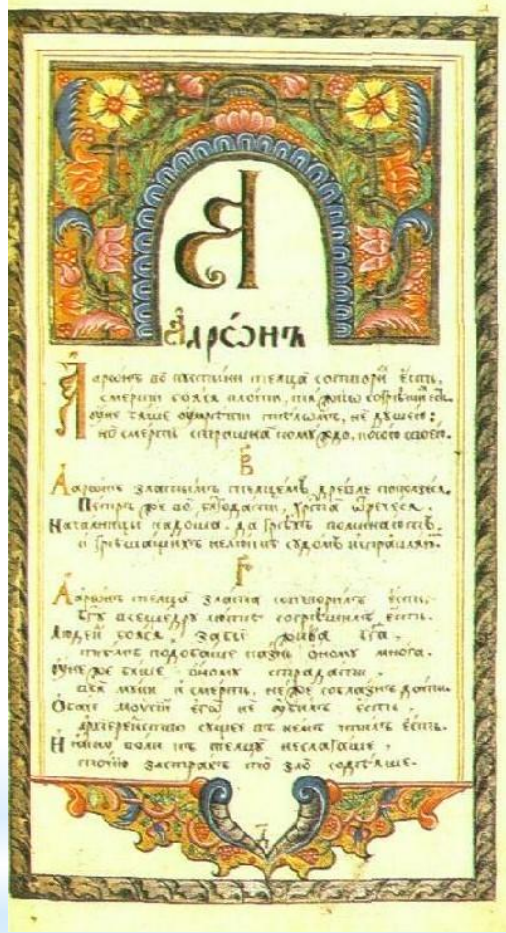 А
Аарѡ́нъ
Ааро́нъ во пустыни телца сотвори́ е́сть,
смерти боя́ся плоти, согрѣши
Оуне бяше оумрети тѣломъ, не душею:
но смерть страшна комуждо,
В
Ааронъ златымъ телцемъ древле поползеся.
Петръ же во бл҃годати, хрⷭ҇та ѡтречеся.
Началницы падоша, да грѣхъ поминаютъ,
и грѣшащихъ нелютѣ судомъ исправляютъ.
Г
Ааронъ телца злата сотворилъ есть,
бг҃у всещедру люте согрѣшилъ есть.
Людей бояся, забы жива бг҃а,
подобаше казнь оному многа.
Оуне же бяше оному страдати,
вся муки и смерть, неже соблазнъ дати.
Обаче моѵсей его не оубилъ есть,
архиерейство сущее въ немъ чтилъ есть.
И воли къ телцу неслагаше,
точию застрахъ то зло содѣяше.